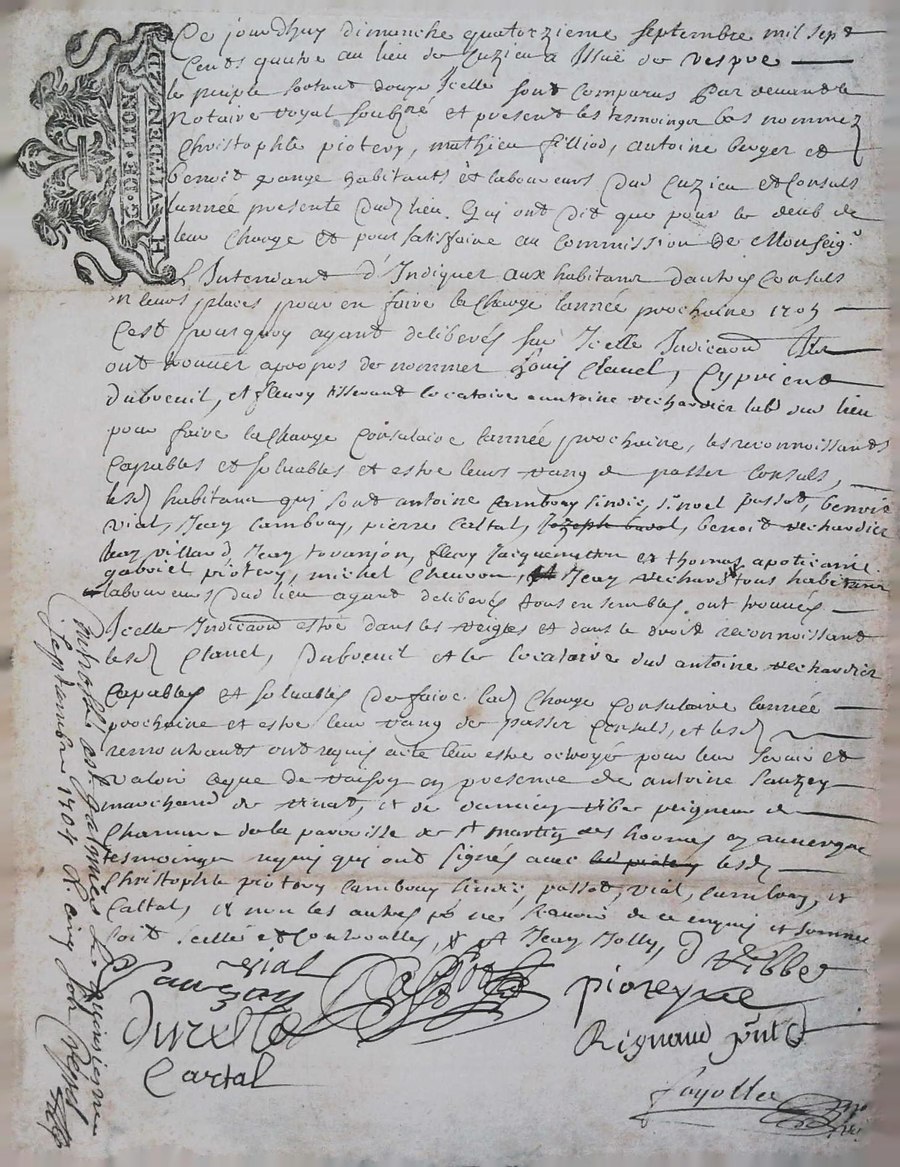 G. DE LION
H VIT DEN 2 D
Ce jourdhuy dimanche quatorzieme septembre mil sept
Cents quatre au lieu de Cuzieu a Issuë de vespre
le peuple sortant douye Icelle sont comparus par devant le
Notaire royal soubzné et present les tesmoingz bas nommez
Christophle piotery, mathieu filliod, antoine berger et
benoit grange habitants et laboureurs dud Cuzieu et Consuls
lannée presente dud lieu. Qui ont dit que pour le deub de
leur Charge et pour satisfaire au Commission de Monseigr
L'Intendant d'Indiquer aux habitans d'autres Consuls
en leurs places pour en faire la Charge lannée prochaine 1705
Cest pourquoy ayant deliberés sur Icelle Indicaon Ils
ont trouver apropos de nommer Louis Clauel, Cyprient
Dubreuil, et fleury tisserand locataire a antoine rechardier lab dud lieu
pour faire la Charge Consulaire lannée prochaine, les reconnoissants
Capables et soluables et estre leurs rang de passer Consuls,
lesd habitans qui sont antoine Cambray sindic, sr noel passot, benoit
vial, Jean Cambray, pierre Caltal, benoit rechardier
villard, Jean touanjon, fleury Jacquemetton et thomas apoticaire
gabriel piotery, michel Cheuron, Jean rechard tous habitans
laboureurs dud lieu ayant deliberés tous ensembles, ont trouués
Icelle Indicaon estre dans les reigles et dans le droit reconnoissant
lesd Clauel, Dubreuil et le locataire dud antoine rechardier
Capables et soluables de faire lad Charge Consulaire lannée
prochaine et estre leur rang de passer Consuls, et lesd
remontrants ont requis acte leur estre octroyé pour leur seruir et
valoir ceque de raison en presence de antoine Sauzey
marchand de et de damien tibe peigneur de
Chanure de la paroisse de st martin des hoomes en auuergne
tesmoingz requis qui ont signés auec lesd
Christophle piotery Cambray sindic, passot, vial, Cambray, et
Caltal, et non les autres pr ne scauoir de ce enquis et sommés
soit scellé et Controollé, Jean Jolly, D tibbe
vial
Sauzey
passot
pioteyre
Durelle
Rignaud
Cartal
fayolle
Controllé a st galmier le
septembre 1704 R cinq sols